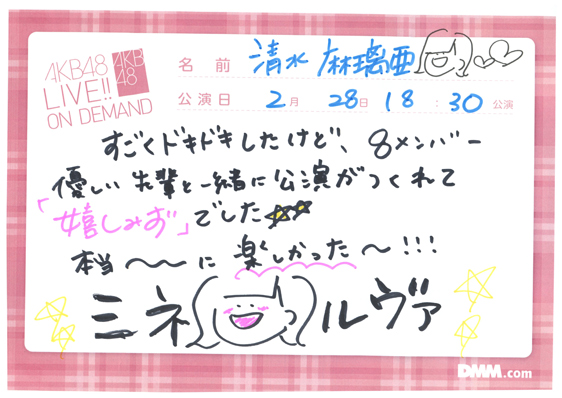 AKB48
LIVE!!
ON DEMAND
AKB
48
名前 清水 麻璃亜
公演日 2月 28日 18:30公演
すごくドキドキしたけど、8メンバー
優しい先輩と一緒に公演がつくれて
「嬉しみず」でした
本当〜〜に楽しかった〜!!!
ミネルヴァ
DMM.com